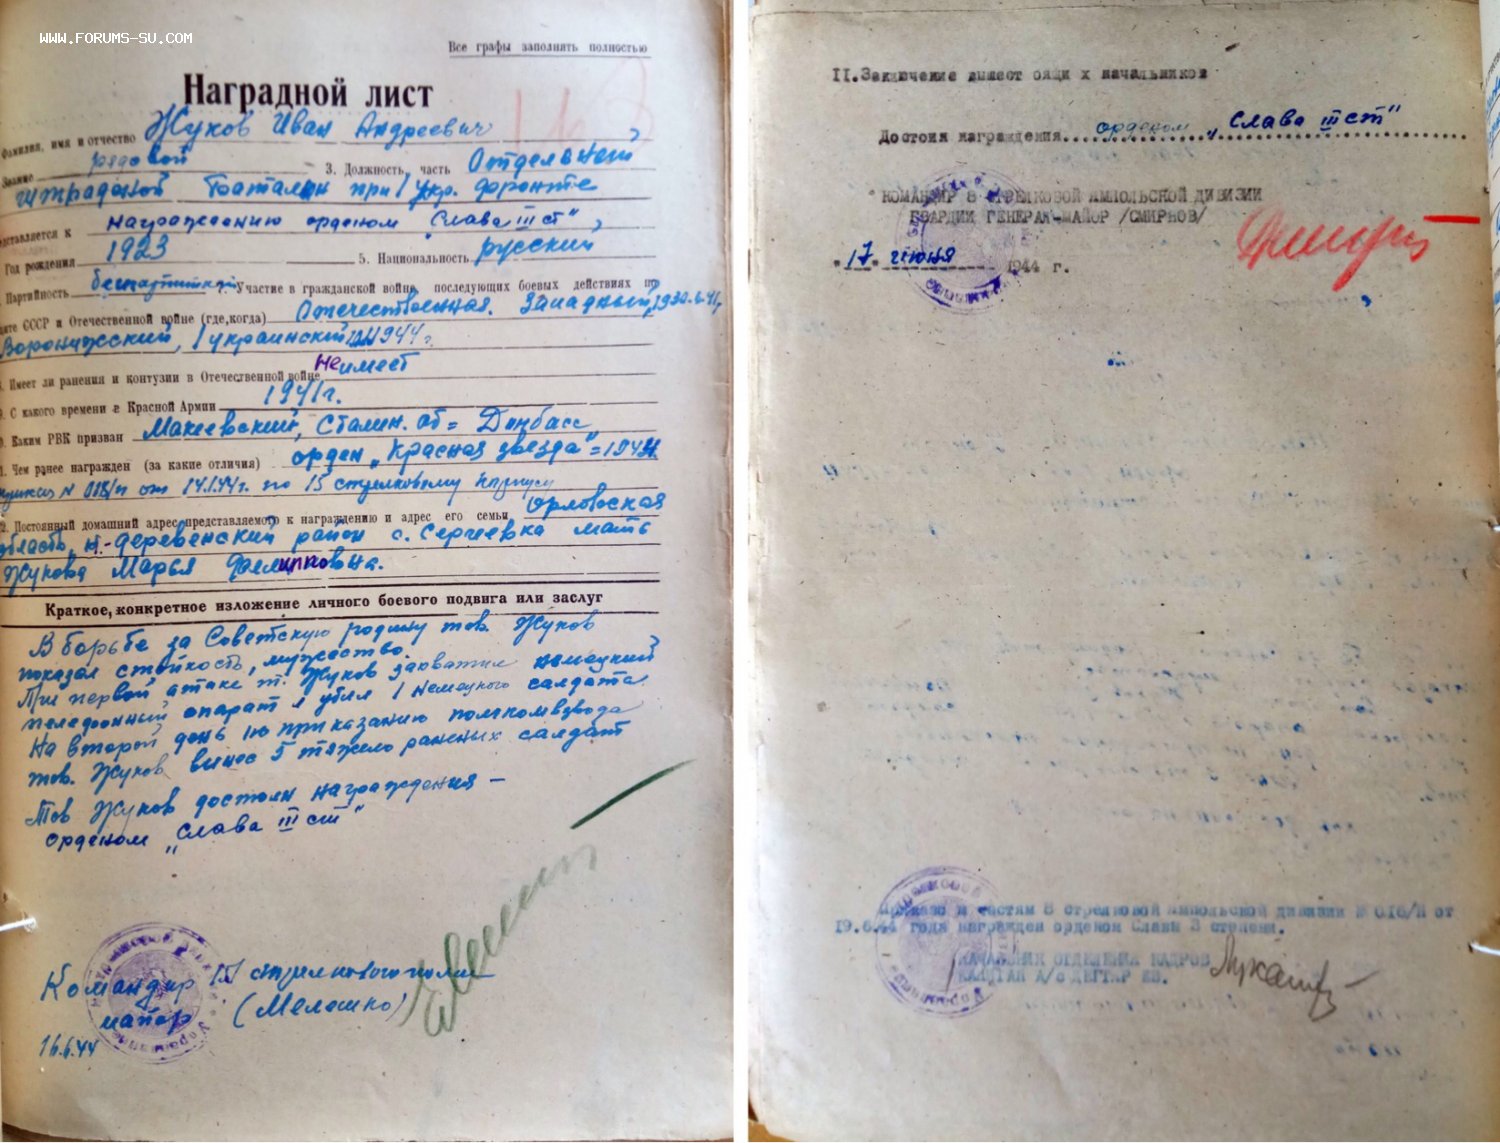 WWW.FORUMS-SU.COM
Все графы заполнять полностью
Наградной лист
Фамилия, имя и отчество Жуков Иван Андреевич
Звание рядовой 3. Должность, часть Отдельной
штрафной баталион при 1 Укр. фронте
дставляется к награждению орденом „Слава III ст"
Год рождения 1923 5. Национальность русский
Партийность беспартийный 7. Участие в гражданской войне, последующих боевых действиях по
щите СССР и Отечественной войне (где, когда) Отечественная. Западный,
Воронижский, 1 украинский 1944 г.
8. Имеет ли ранения и контузии в Отечественной войне не имеет
9. С какого времени в Красной Армии 1941 г.
0. Каким РВК призван Макеевский, Сталин. об= Донбасс
1. Чем ранее награжден (за какие отличия) орден „Красная звезда"=1944
приказ N 018/н от 14.1.44г. по 15 стрелковому корпусу
2. Постоянный домашний адрес представляемого к награждению и адрес его семьи Орловская
область, н.-деревенский район с. Сергиевка мать
Жукова Марья Филипповна.
Краткое, конкретное изложение личного боевого подвига или заслуг
В борьбе за Советскую родину тов. Жуков
показал стойкость, мужество.
При первой атаке т. Жуков захватил немецкий
телефонный опарат и убил 1 немецкого салдата.
На второй день по приказанию помкомвзвода
тов. Жуков вынес 5 тяжело раненых салдат
Тов Жуков достоин награждения —
орденом „Слава III ст"
Командир 151 стрелкового полка
майор (Мелашко)
16.6.44
II. Заключение вышестоящих начальников
Достоин награждения орденом „Слава III ст"
КОМАНДИР 8 СТРЕЛКОВОЙ ЯМПОЛЬСКОЙ ДИВИЗИИ
ГВАРДИИ ГЕНЕРАЛ-МАЙОР /СМИРНОВ/
"17" июня 1944 г.
Приказом частям 8 стрелковой ямпольской дивизии № 016/Н от
19.6.44 года награжден орденом Славы 3 степени.
НАЧАЛЬНИК ОТДЕЛЕНИЯ КАДРОВ
КАПИТАН А/С